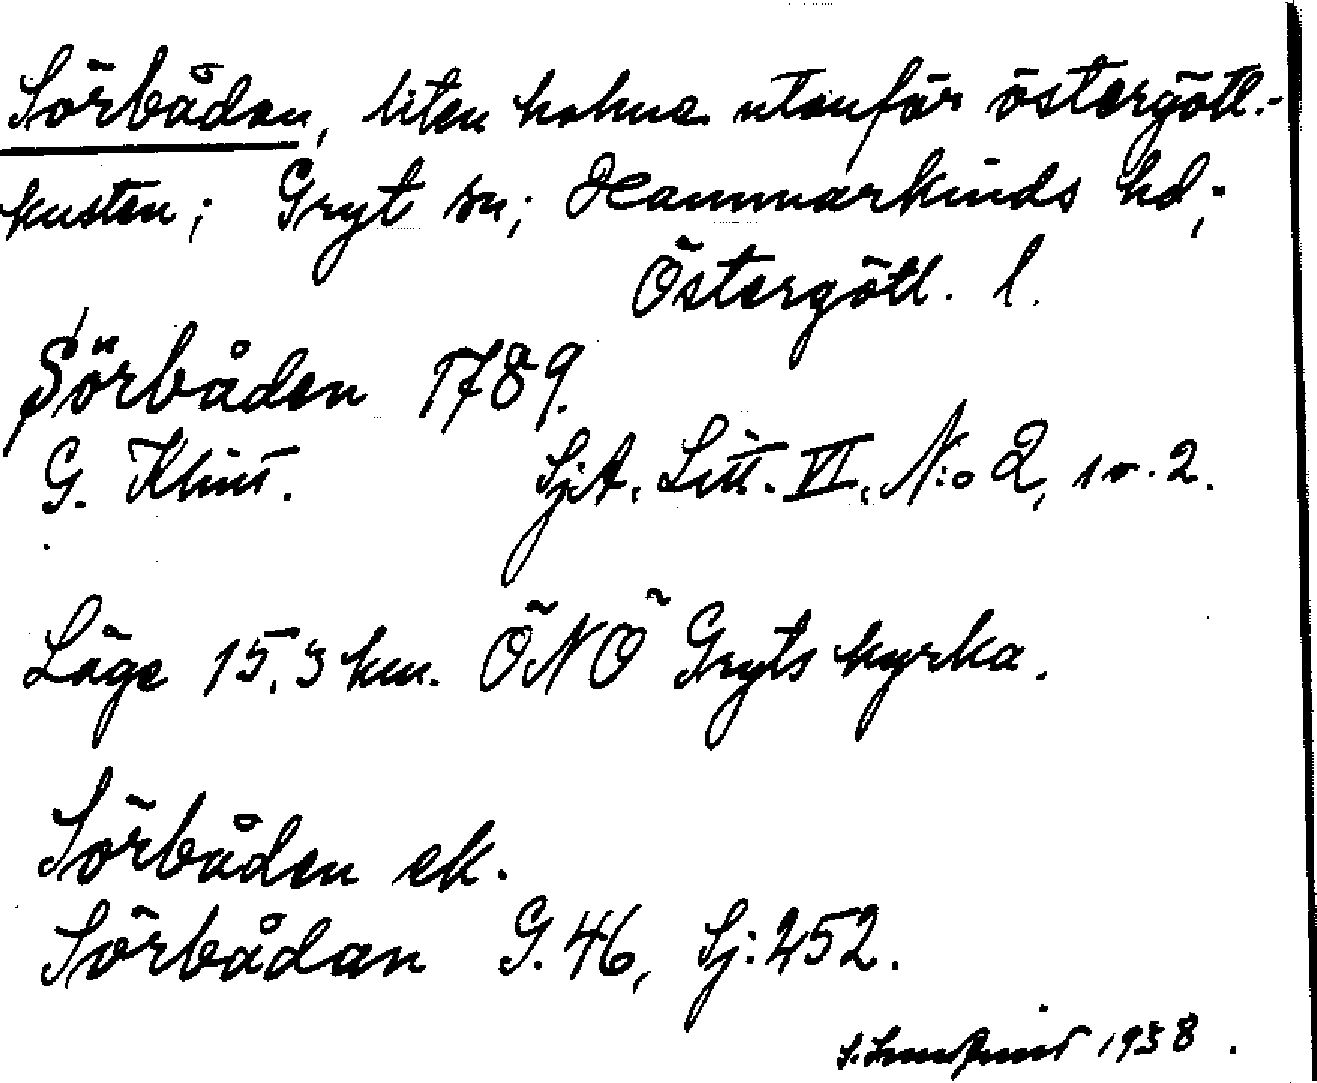 Sörbådan, liten holme utanför östergötl.-
kusten; Gryt sn; Hammarkinds hd;
Östergötl. l.
Sörbåden 1789.
G. Klint. SjA. Litt. VI, N:o 2, 2.
Läge 15,3 km. ÖNÖ Gryts kyrka.
Sörbåden ek.
Sörbådan G. 46, Sj: 252.
1938.